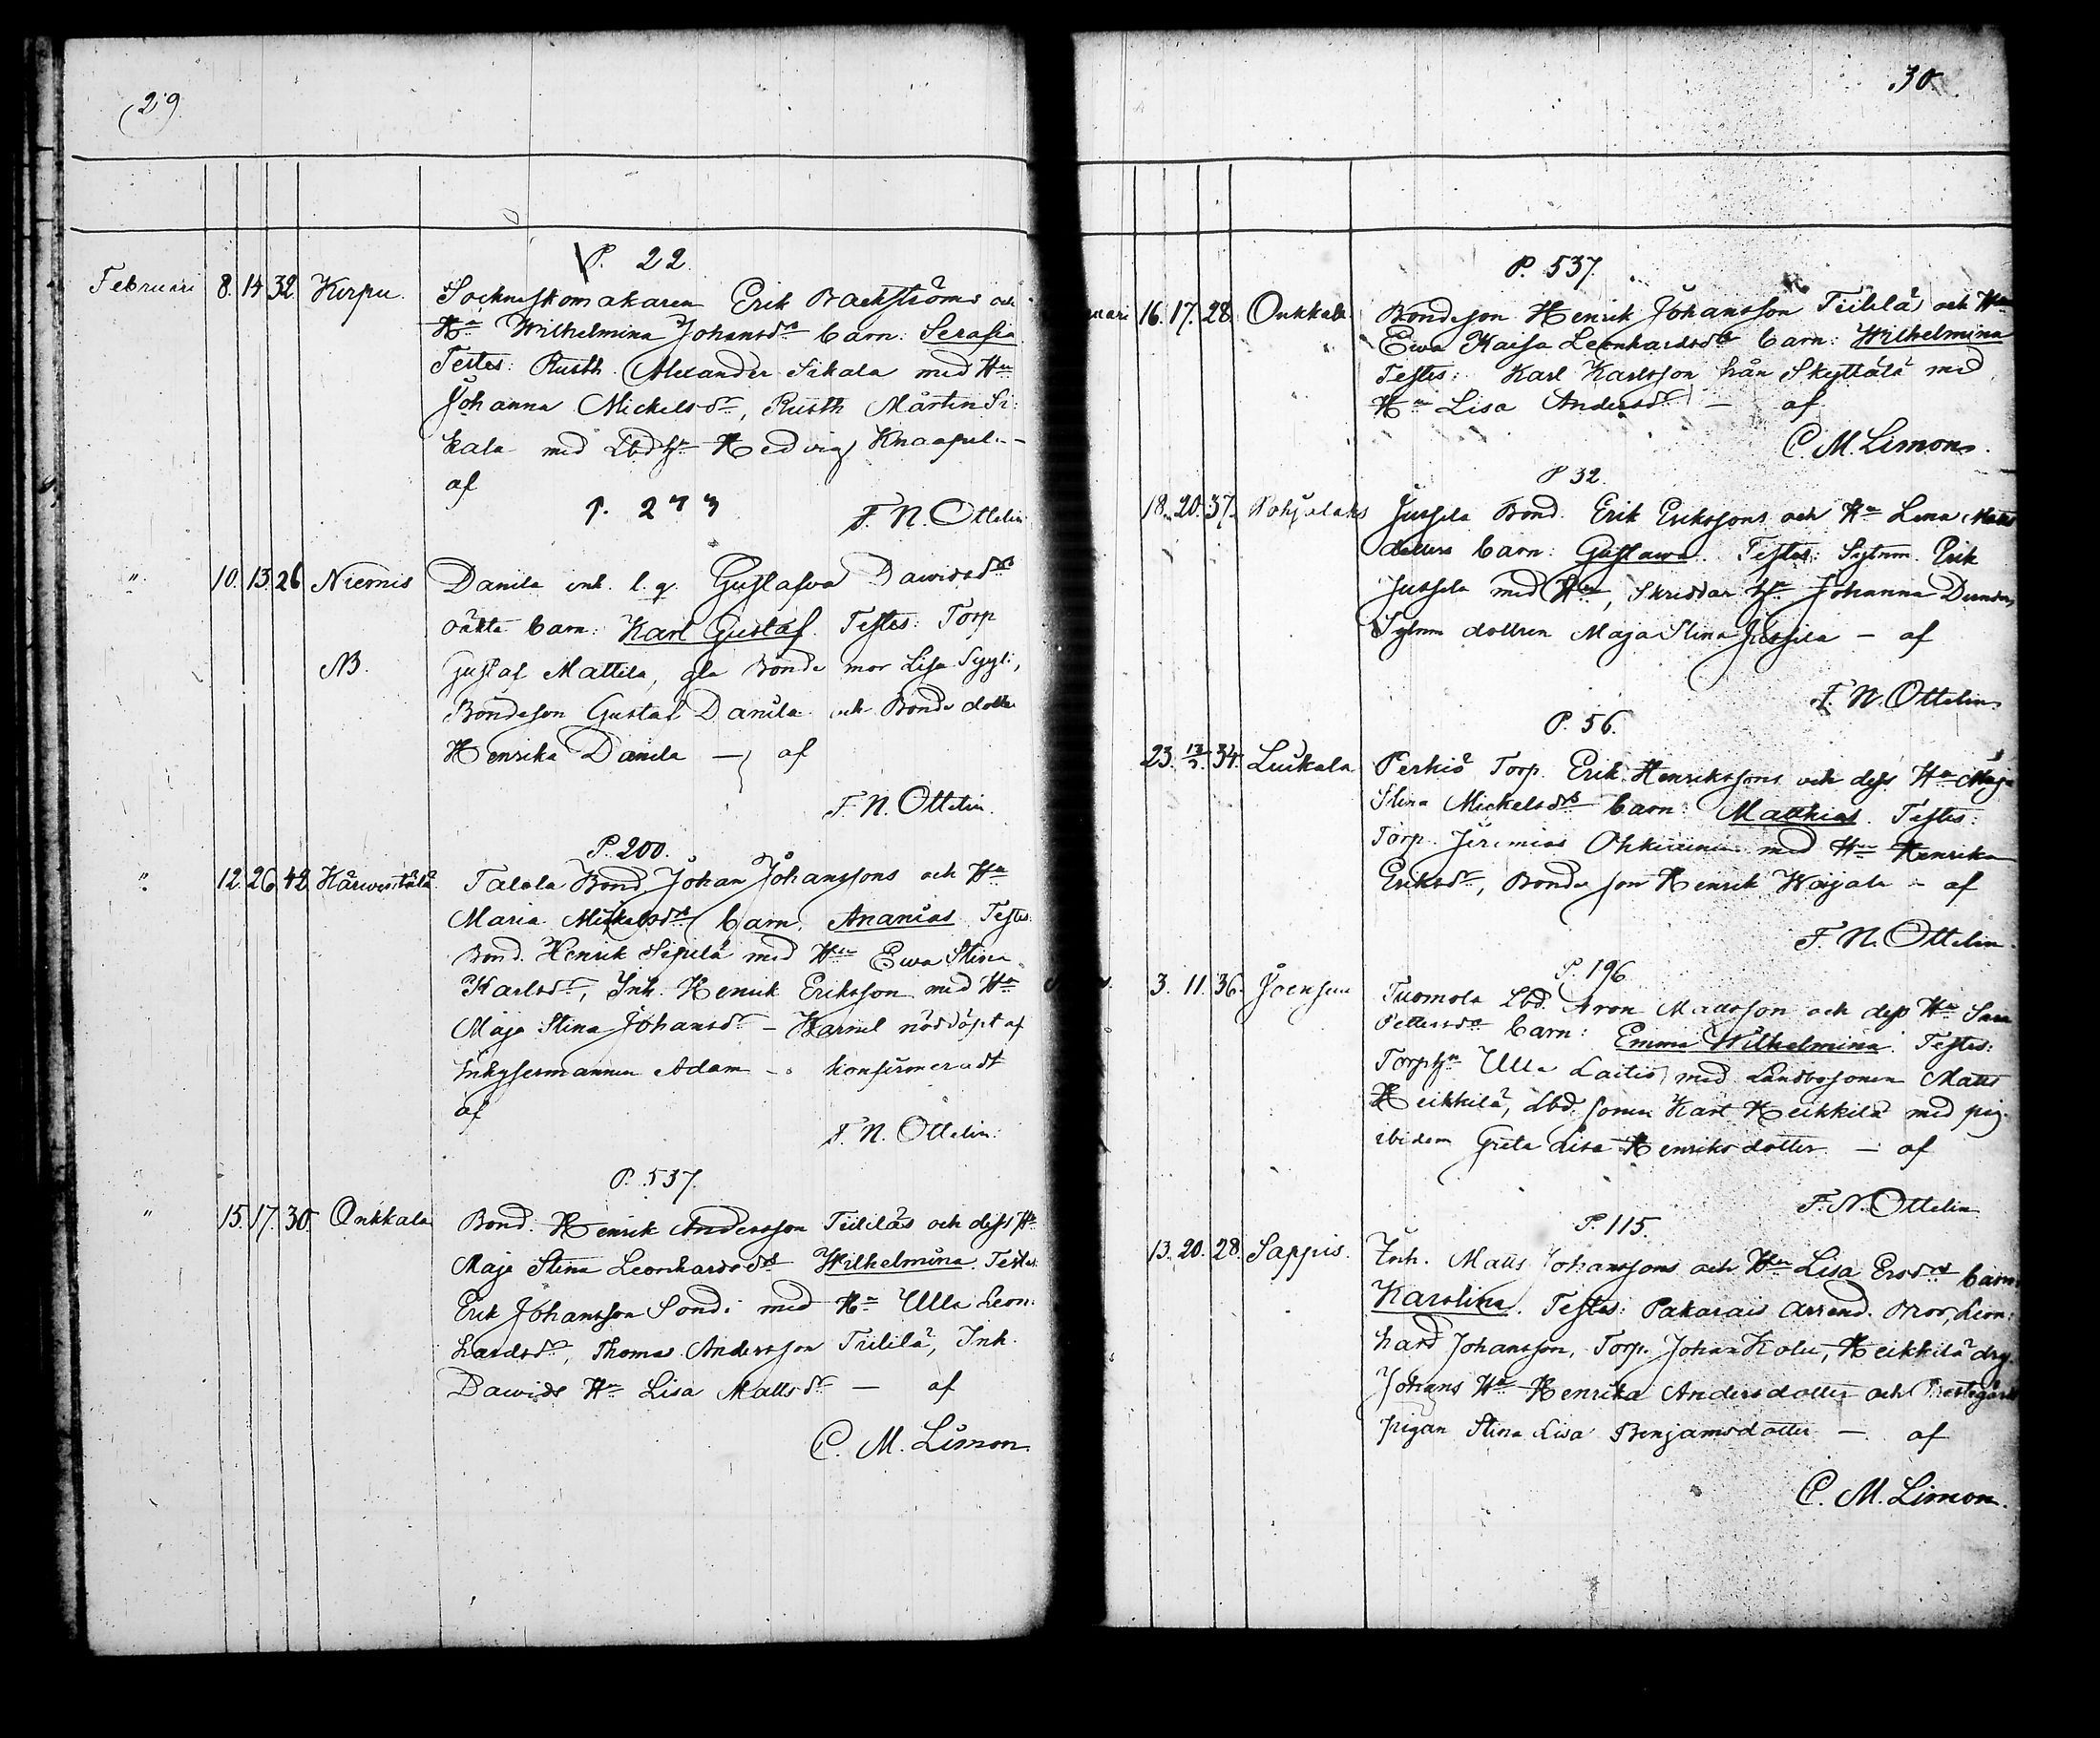 29
P. 22.
Februari 8. 14 32. Kirpu. Sockneskomakaren Erik Backströms och
Hu Wilhelmina Johansdrs barn: Serafia
Testes: Rusth. Alexander Sikala med Hu
Johanna Mickelsdr, Rusth Mårten Si-
kala med Lbdhu Hedvig Knaapil. –
af
P. 277
F. N. Ottelin
" 10. 13. 26 Niemis Danila inh. l. q. Gustafva Davidsdrs
oäkta barn: Karl Gustaf. Testes: Torp
NB. Gustaf Mattila, gla Bonde mor Lisa Syyli,
Bondeson Gustaf Danila och Bonde dottr
Henrika Danila — af
F. N. Ottelin.
P. 200.
" 12. 26. 42. Härwentälä Talola Bond. Johan Johanssons och Hu
Maria Mickelsdrs barn. Ananias. Testes:
Bond. Henrik Sipilä med Hu Ewa Stina
Karlsdr, Inh. Henrik Eriksson med Hu
Maja Stina Johansdr – Barnet nöddöpt af
Inhysemannen Adam – konfirmeradt
af
F. N. Ottelin.
P. 537.
" 15. 17. 30. Onkkala Bond. Henrik Andersson Tiililäs och dess Hu
Maja Stina Leonhardsdrs Wilhelmina. Testes:
Erik Johansson Sondi med Hu Ulla Leon-
hardsdr, Thomas Andersson Tiililä, Inh.
Dawids Hu Lisa Mattsdr — af
C. M. Limon.
30.
P. 537.
uari 16. 17. 28. Onkkala Bondeson Henrik Johansson Tiililä och Hu
Ewa Kaisa Leonhardsdrs barn: Wilhelmina
Testes: Karl Karlsson från Skyttälä med
Hu Lisa Andersdr — af
C. M. Limon.
P 32.
18. 20. 37. Pohjalaks Jussila Bond. Erik Erikssons och Hu Lena Matts
dotters barn: Gustawa. Testes: Sytnm. Erik
Jussila med Hu, Skräddar hu Johanna
Sytnm dottren Maja Stina Jussila — af
F. N. Ottelin
P. 56.
23. 13/3. 34. Luukala Perkiö Torp. Erik Henrikssons och dess Hu Maja
Stina Mickelsdrs barn: Matthias. Testes:
Torp. Jeremias med Hu Henrika
Eriksdr, Bonde son Henrik Karjala – af
F. N. Ottelin.
P. 196
3. 11. 36. Joensuu Tuomola Lbd. Aron Mattsson och dess Hu Sara
Pettersdrs barn: Emma Wilhelmina. Testes:
Torphu Ulla Laitio med Landbosonen Matts
Heikkilä, Lbd. sonen Karl Heikkilä med pig.
ibidem Greta Lisa Henriksdotter. — af
F. N. Ottelin
P. 115.
13. 20. 28. Sappis. Inh. Matts Johanssons och Hu Lisa Ersdrs barn:
Karolina. Testes: Pakarais arrend. Bror, Leon-
hard Johansson, Torp. Johan Kolu, Heikkilä drg
Johans Hu Henrika Andersdotter och Prestegårds
pigan Stina Lisa Benjamsdotter — af
C. M. Limon.